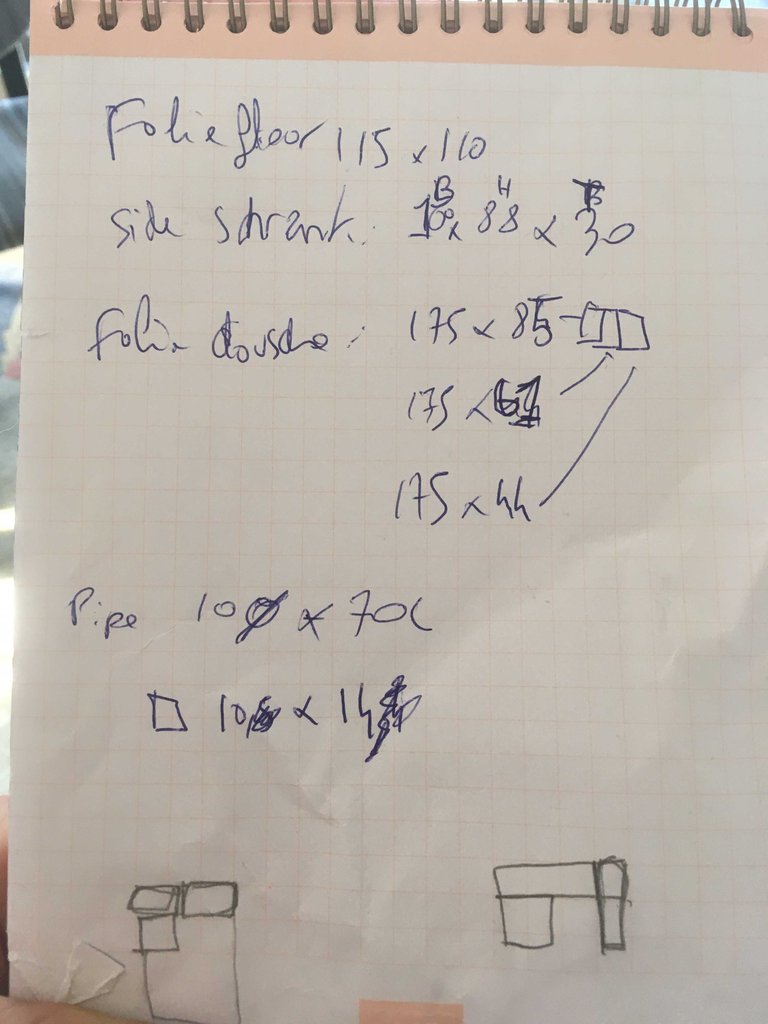 Folie floor 115 x 110
B H B
side schrank: 100 x 88 x 30
Folie dousche: 175 x 85
175 x 61
175 x 44
Pipe 10 x 70
10 x 14